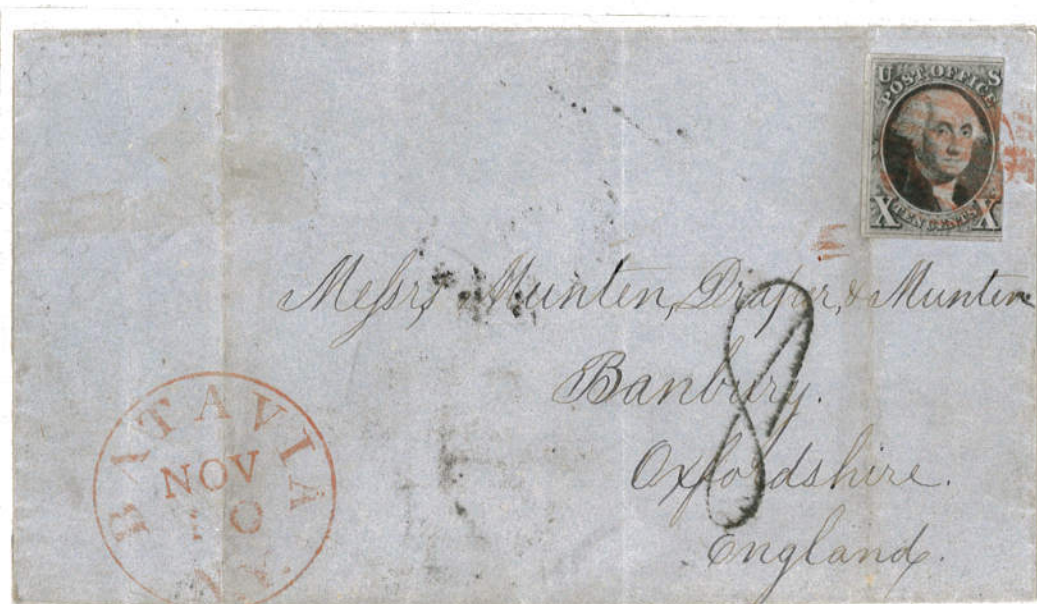 U S
POST OFFICE
X TEN CENTS X
Messrs Munten, Draper, & Munten
Banbury.
8
Oxfordshire.
England.
BATAVIA
NOV